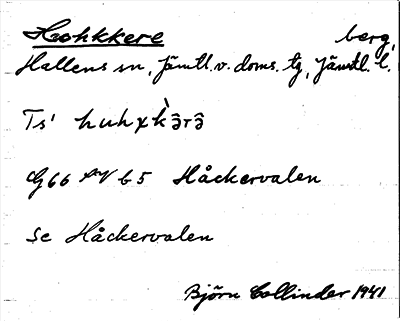 Hohkkere berg,
Hallens sn, Jämtl. v. doms. tg, Jämtl. l.
Ts' huhχk̀ə̂rə̂
G66 b5 Håckervalen
Se Håckervalen
Björn Collinder 1941